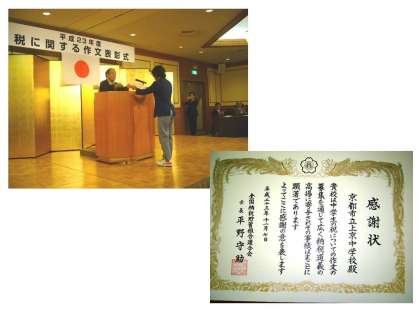 平成23年度
税に関する作文表彰式
感謝状
京都市立上京中学校殿
貴校は中学生の税についての作文の
募集を通じて広く納税道義の
高揚に寄与されその功績はまことに
顕著であります
よってここに感謝の意を表します
平成二十三年十一月七日
全国納税貯蓄組合連合会
会長 平野守助